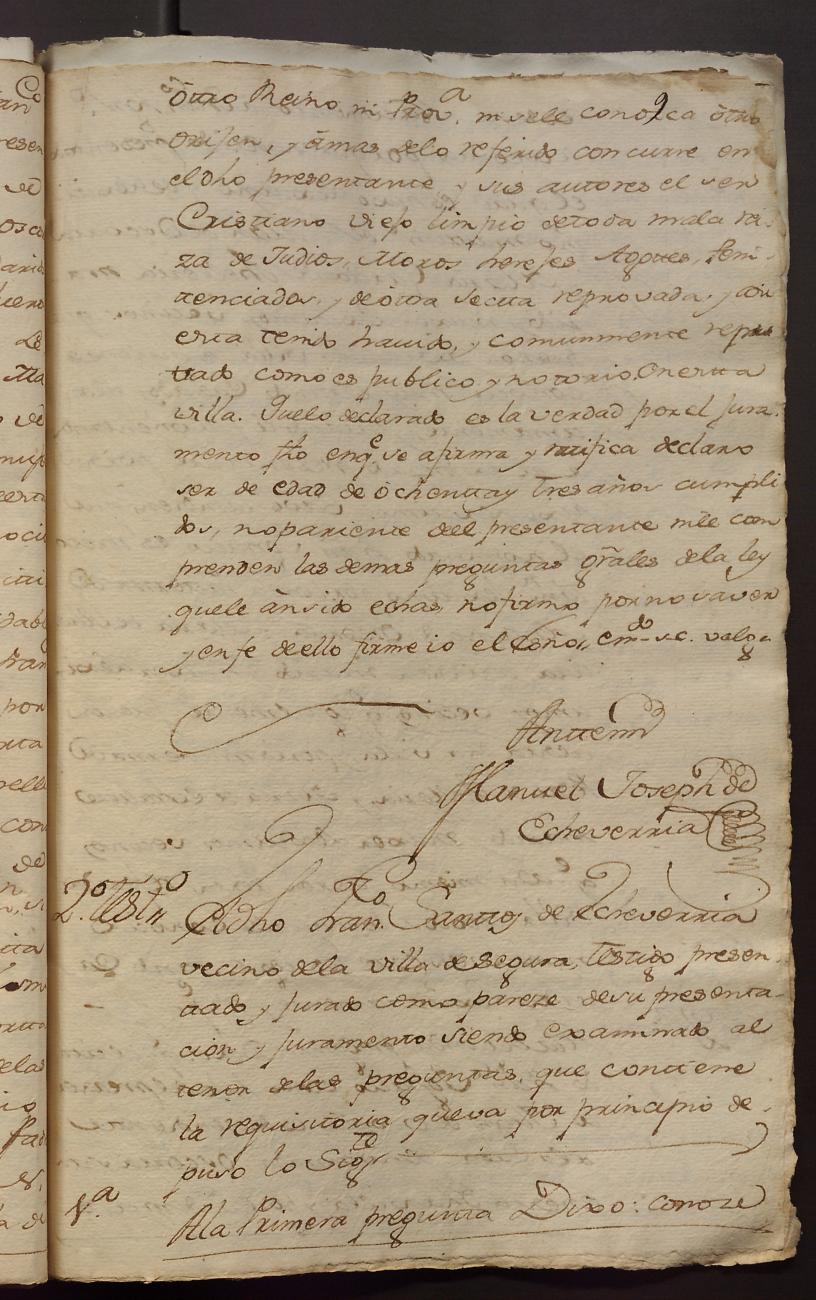 9
ôtro Reino ni Prova, ni se le conosca ôtro
Orijen, y âmas delo referido concurre en
el dho presentante y sus autores el ser
Cristiano viejo limpio de toda mala rà-
za de Judios, Moros, herejes Agotes, Peni-
tenciados, y de ôtra secta reprovada, y por
tenido havido, y comunmente repu
tado como es publico y notorio. En esta
villa. Que lo declarado es la verdad por el jura-
mento fho en qe se afirma y ratifica declaro
ser de edad de ôchenta y tres años cumpli
dos, no pariente del presentante ni le con
prenden las demas preguntas grales de la ley
que le ân sido echas no firmo por no saver
y en fe de ello firme io el emdo valga
Antemi
Manuel Joseph de
Echeverria
2.º Testº El dho Franco Santtos de Echeverria
vecino dela villa de Segura, testigo presen-
tado, y jurado como pareze de su presenta-
cion y juramento siendo examinado al
tenor delas preguntas, que contiene
la requisitoria que va por principio de-
puso lo Sigte
1.ª Ala Primera pregunta Dixo: conoze